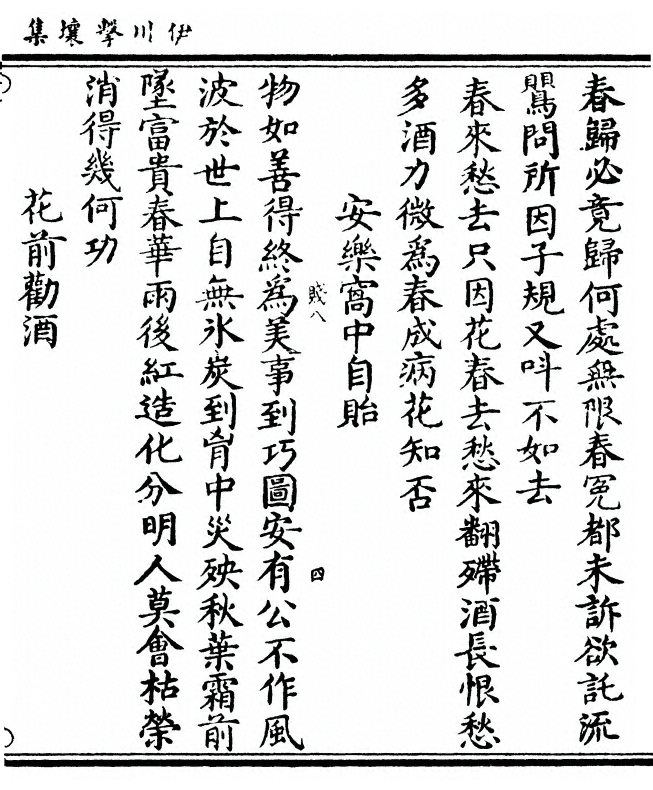 伊川擊壤集
春歸必竟歸何處無限春冤都未訴欲託流
鸎問所因子規又叫不如去
春來愁去只因花春去愁來翻殢酒長恨愁
多酒力微爲春成病花知否
安樂窩中自貽
賤八
四
物如善得終爲美事到巧圖安有公不作風
波於世上自無氷炭到胷中災殃秋葉霜前
墜富貴春華雨後紅造化分明人莫會枯榮
消得幾何功
花前勸酒